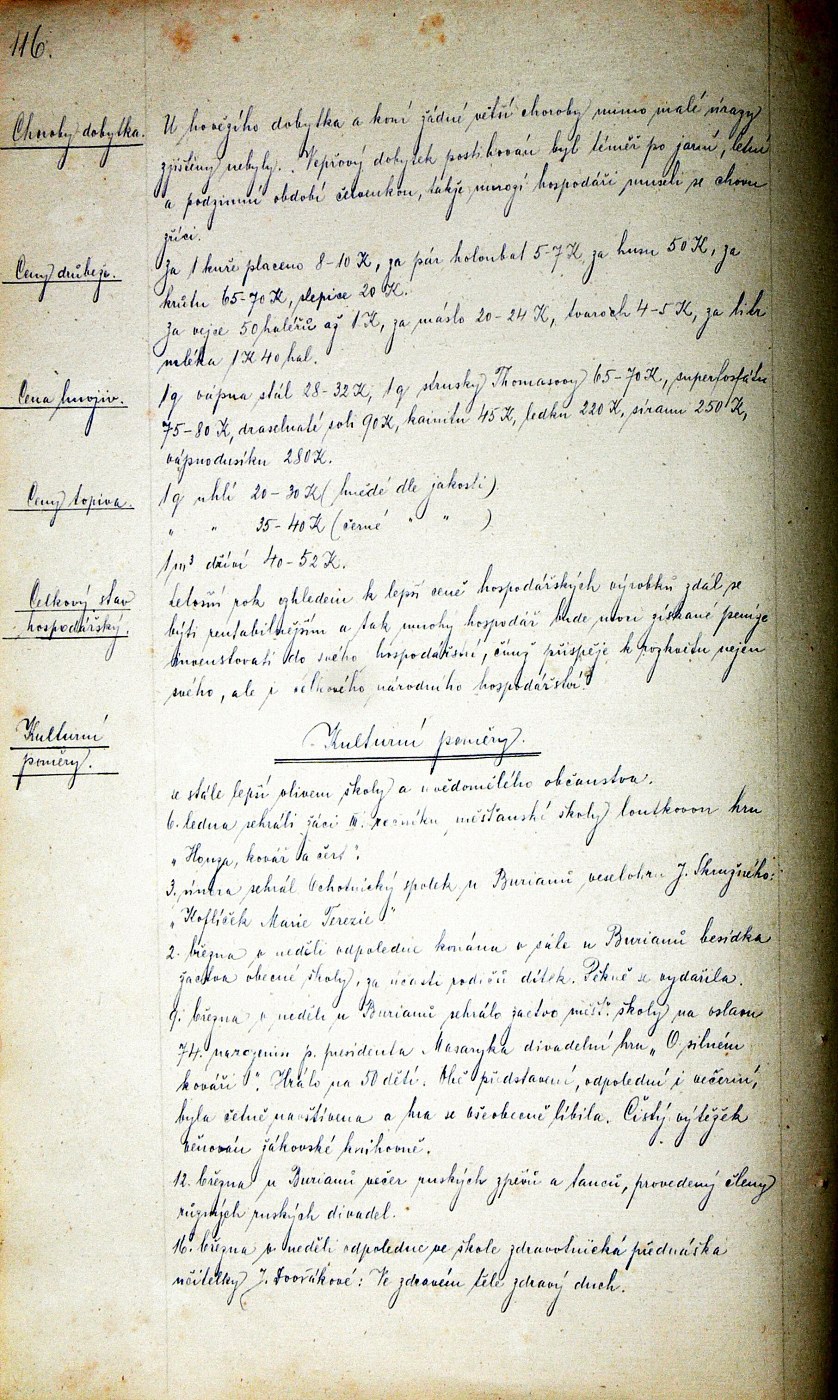 116.
Choroby dobytka.
U hovězího dobytka a koní žádné větší choroby mimo malé úrazy
zjištěny nebyly. Vepřový dobytek postihován byl téměř po jarní, letní
a podzimní období červenkou, takže mnozí hospodáři museli se chovu
zříci.
Ceny drůbeže.
Za 1 kuře placeno 8-10 K, za pár holoubat 5-7 K, za husu 50 K, za
krůtu 65-70 K, slepice 20 K.
Za vejce 50 haléřů až 1 K, za máslo 20-24 K, tvaroch 4-5 K, za litr
mléka 1 K 40 hal.
Cena hnojiv.
1 q vápna stál 28-32 K, 1 q strusky Thomasovy 65-70 K, superfosfátu
75-80 K, draselnaté soli 90 K, kainitu 45 K, ledku 220 K, síranu 250 K,
vápnodusíku 280 K.
Ceny topiva.
1 q uhlí 20-30 K (hnědé dle jakosti)
„ „ 35-40 K (černé „ „ )
1 m³ dříví 40-52 K.
Celkový stav
hospodářský.
Letošní rok ohledem k lepší ceně hospodářských výrobků zdál se
býti rentabilnějším a tak mnohý hospodář bude moci získané peníze
investovati do svého hospodářství, čímž přispěje k rozkvětu nejen
svého, ale i celkového národního hospodářství.
Kulturní
poměry.
Kulturní poměry.
se stále lepší vlivem školy a uvědomělého občanstva.
6. ledna sehráli žáci III. ročníku měšťanské školy loutkovou hru
„Honza, kovář a čert".
3. února sehrál Ochotnický spolek u Burianů veselohru J. Skružného:
„Koflíček Marie Terezie"
2. března v neděli odpoledne konána v sále u Burianů besídka
žactva obecné školy, za účasti rodičů dítek. Pěkně se vydařila.
9. března v neděli u Burianů sehrálo žactvo měšť. školy na oslavu
74. narozenin p. presidenta Masaryka divadelní hru „O silném
kováři". Hrálo na 50 dětí. Obě představení, odpolední i večerní,
byla četně navštívena a hra se všeobecně líbila. Čistý výtěžek
věnován žákovské knihovně.
12. března u Burianů večer ruských zpěvů a tanců, provedený členy
různých ruských divadel.
16. března v neděli odpoledne ve škole zdravotnická přednáška
učitelky J. Dvořákové: Ve zdravém těle zdravý duch.